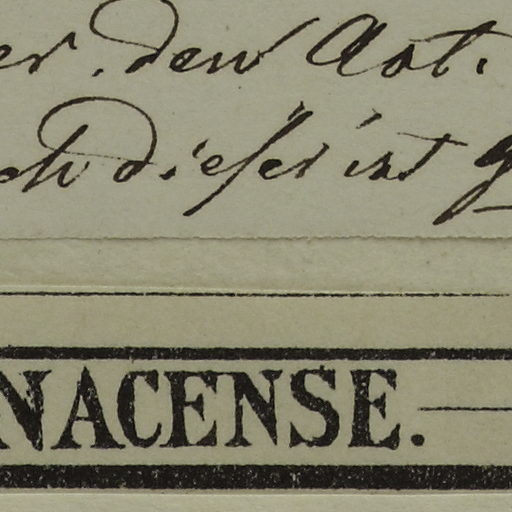 er. den Aut.
ch dieser ist g
NACENSE.